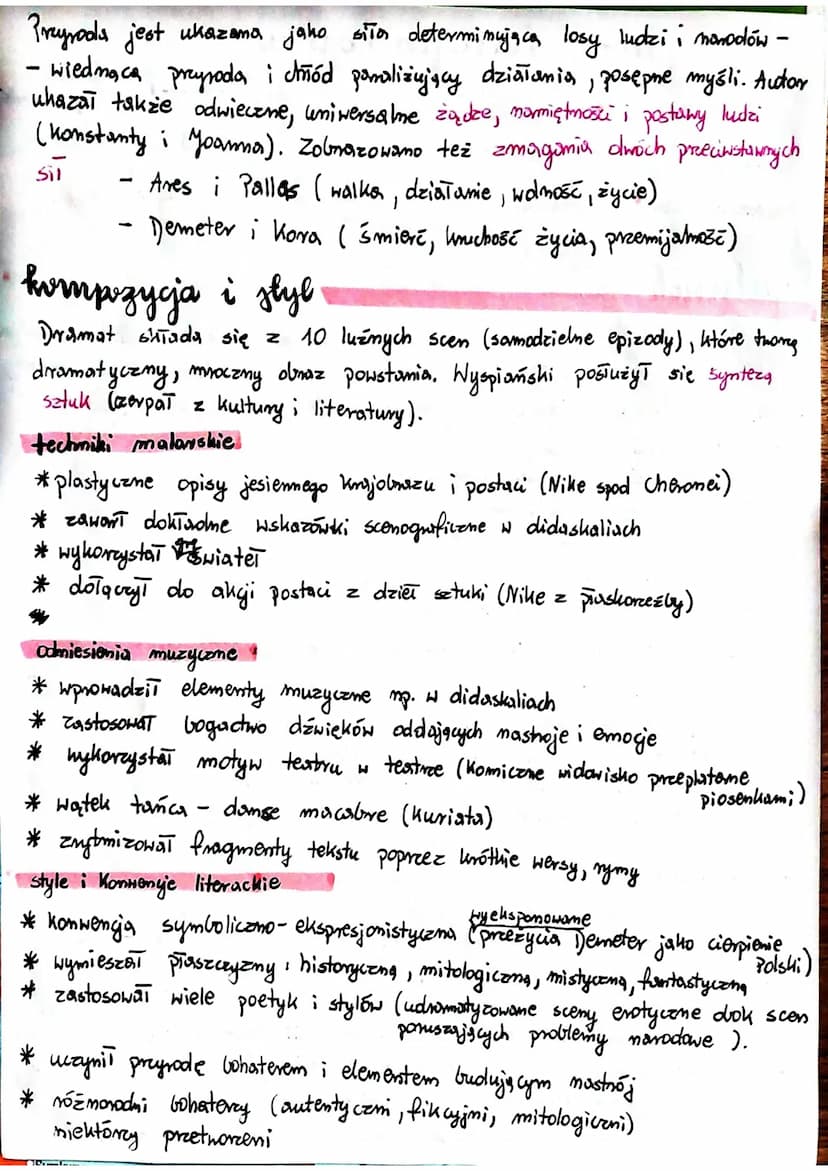 Przyroda jest ukazana jako siła determinująca losy ludzi i narodów -
- wiednąca przyroda i chłód paraliżujący działania, posępne myśli. Autor
ukazał także odwieczne, uniwersalne żądze, namiętności i postawy ludzi
(Konstanty i Joanna). Zobrazowano też zmagania dwóch przeciwstawnych
sił
- Ares i Pallas (walka, działanie, wolność, życie)
- Demeter i Kora (śmierć, kruchość życia, przemijalność)
kompozycja i styl
Dramat składa się z 10 luźnych scen (samodzielne epizody), które tworzą
dramatyczny, mroczny obraz powstania. Wyspiański posłużył się syntezą
sztuk (czerpał z kultury i literatury).
techniki malarskie
* plastyczne opisy jesiennego krajobrazu i postaci (Nike spod Cheronei)
* zawarł dokładne wskazówki scenograficzne w didaskaliach
* wykorzystał świateł
* dołączył do akcji postaci z dzieł sztuki (Nike z płaskorzeźby)
odniesienia muzyczne
* wprowadził elementy muzyczne np. w didaskaliach
* zastosował bogactwo dźwięków oddających nastroje i emocje
* wykorzystał motyw teatru w teatrze (komiczne widowisko przeplatane
piosenkami)
* wątek tańca - danse macabre (Kuriata)
* zrytmizował fragmenty tekstu poprzez krótkie wersy, rymy
style i konwencje literackie
wyeksponowane
* konwencja symboliczno-ekspresjonistyczna (przeżycia Demeter jako cierpienie
Polski)
* wymieszał płaszczyzny: historyczną, mitologiczną, mistyczną, fantastyczną
* zastosował wiele poetyk i stylów (udramatyzowane sceny erotyczne obok scen
poruszających problemy narodowe).
* uczynił przyrodę bohaterem i elementem budującym nastrój
* różnorodni bohaterzy (autentyczni, fikcyjni, mitologiczni)
niektórzy przetworzeni